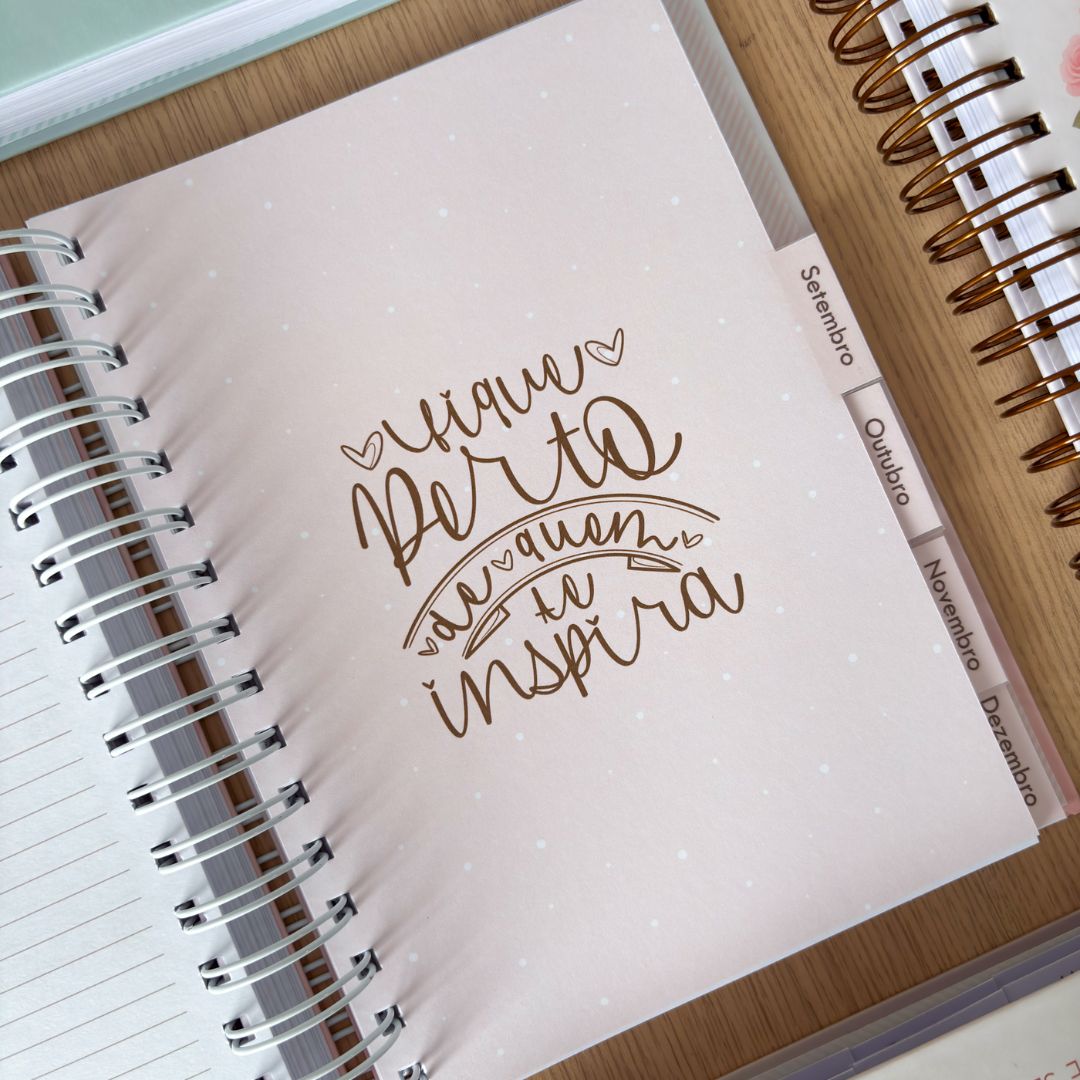 fique
perto
de quem
te
inspira
Setembro
Outubro
Novembro
Dezembro